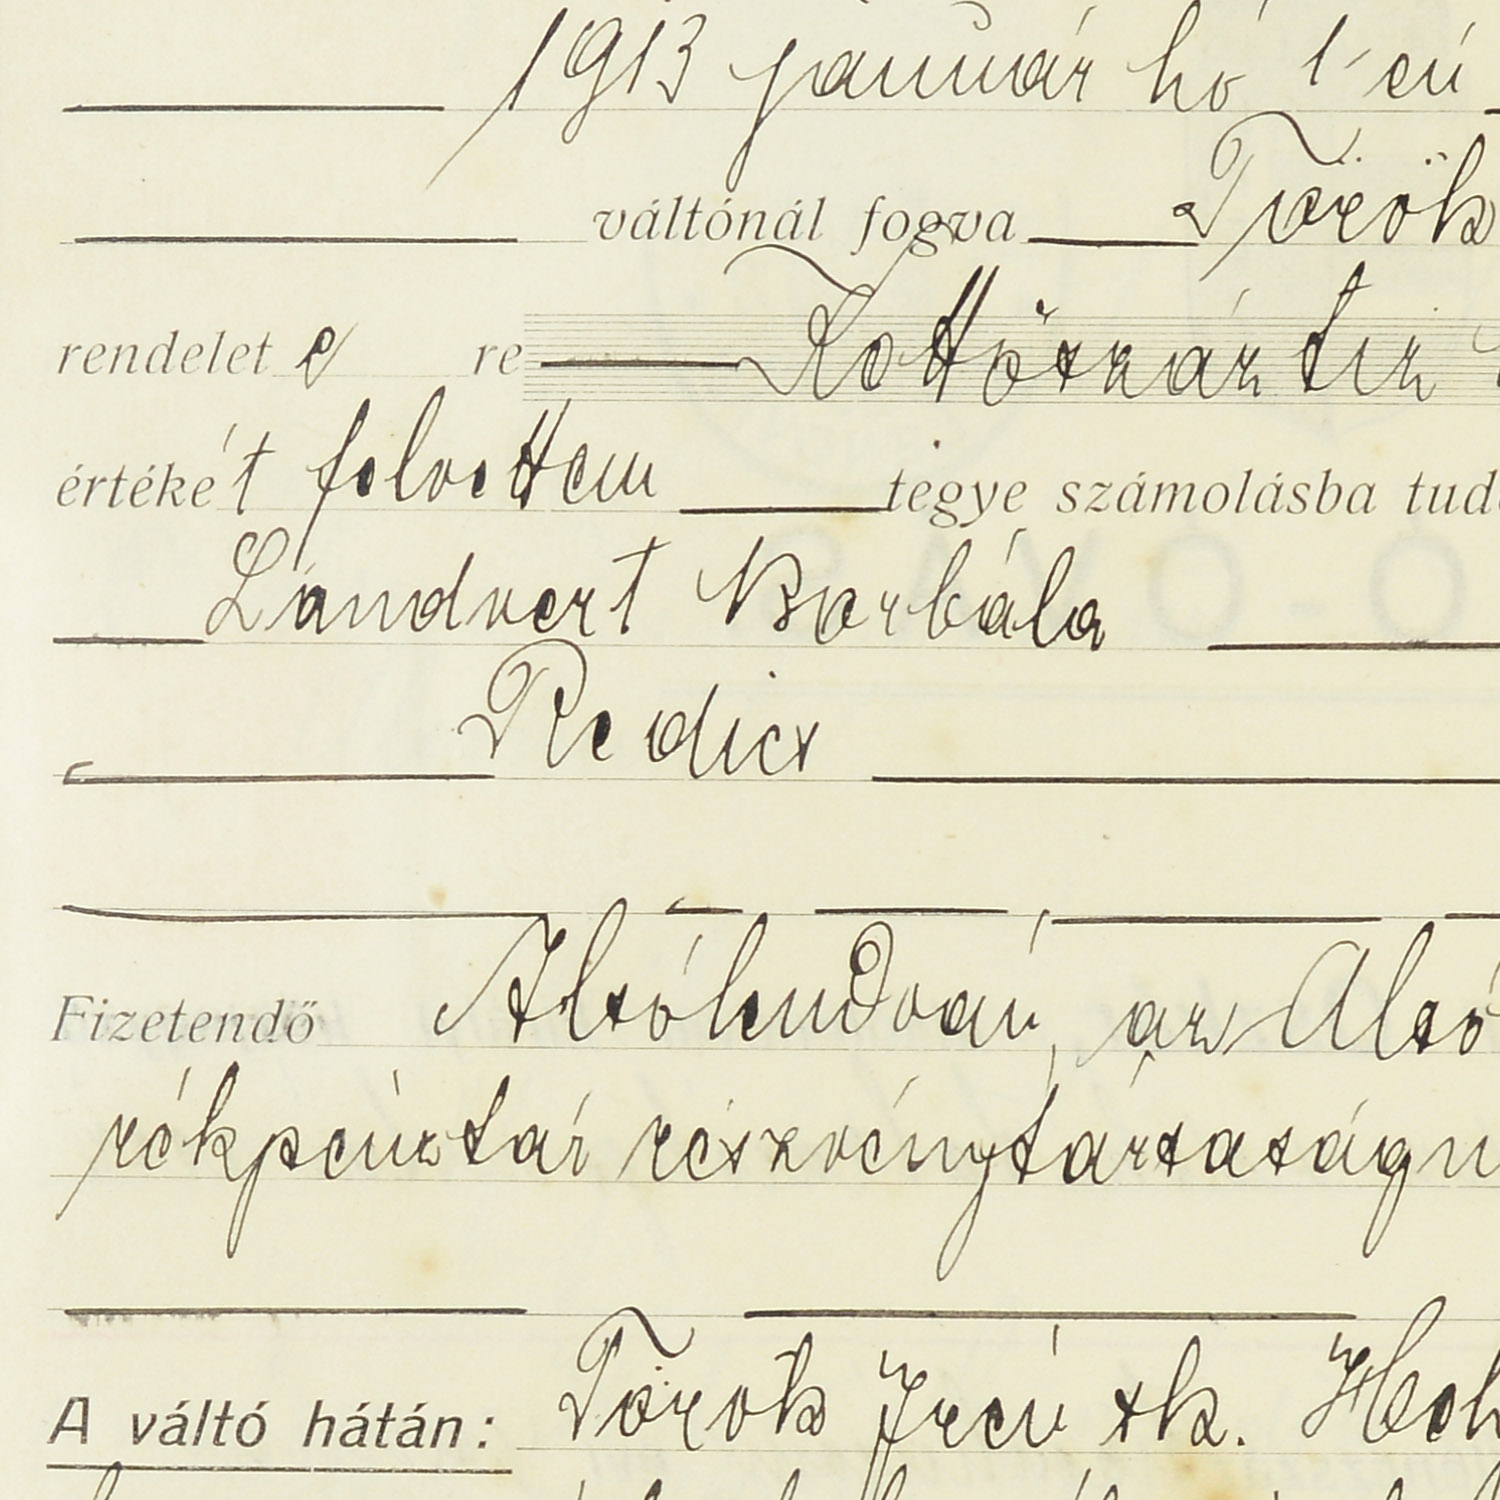 1913 január hó 1-én
váltónál fogva Török
rendelet e re Kettőszáztiz
értéké't felvettem tegye számolásba tud
Lándvert Borbála
Redics
Fizetendő Alsólendván, az Alsó
rékpénztár részvénytársaságn
A váltó hátán: Török Irén sk. Hoh